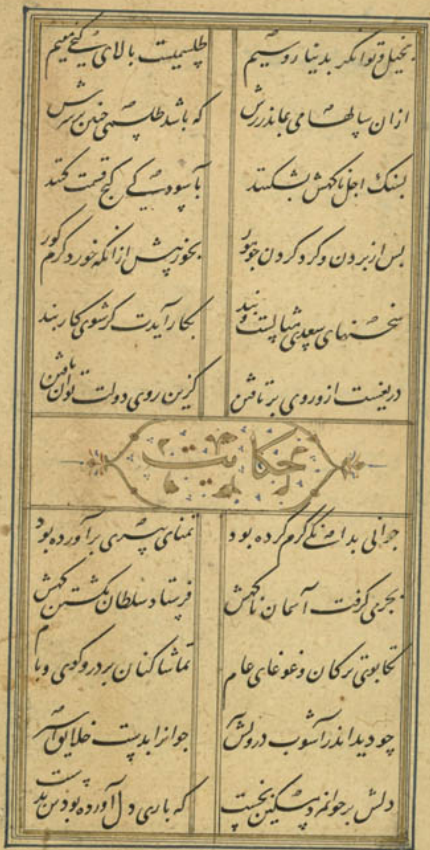 بخیل توانگر بدینار و سیم طلسمیست بالای گنجی مقیم
ازان سالها می بماند زرش که باشد طلسمی چنین بر سرش
بسنک اجل ناکهش بشکنند بآسودگی کنج قسمت کنند
پس از بردن و کرد کردن چو مور بخور پیش از انکه خورد کرم کور
سخنهای سعدی مثالست و پند بکار آیدت کر شوی کاربند
دریغست ازو روی برتافتن کزین روی دولت توان یافتن
حکایت
جوانی بدانکی کرم کرده بود تمنای پیری برآورده بود
بجرمی کرفت آسمان ناکهش فرستاد سلطان بکشتن کهش
تکاپوی ترکان و غوغای عام تماشاکنان بر در و کوی و بام
چو دید اندر آشوب درویش جوانرا بدست خلایق اسیر
دلش بر جوانمرد مسکین بخست که باری دل آورده بودش بدست